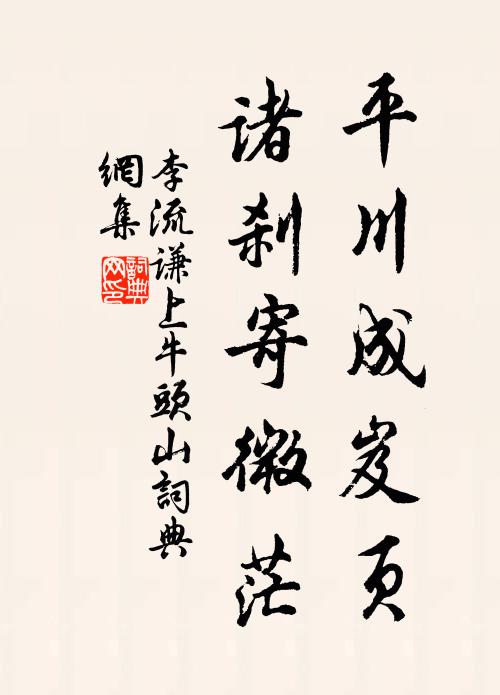 平川成岌页
诸刹寄微茫
李流谦上牛頭山詞典
網集
詞典
网印